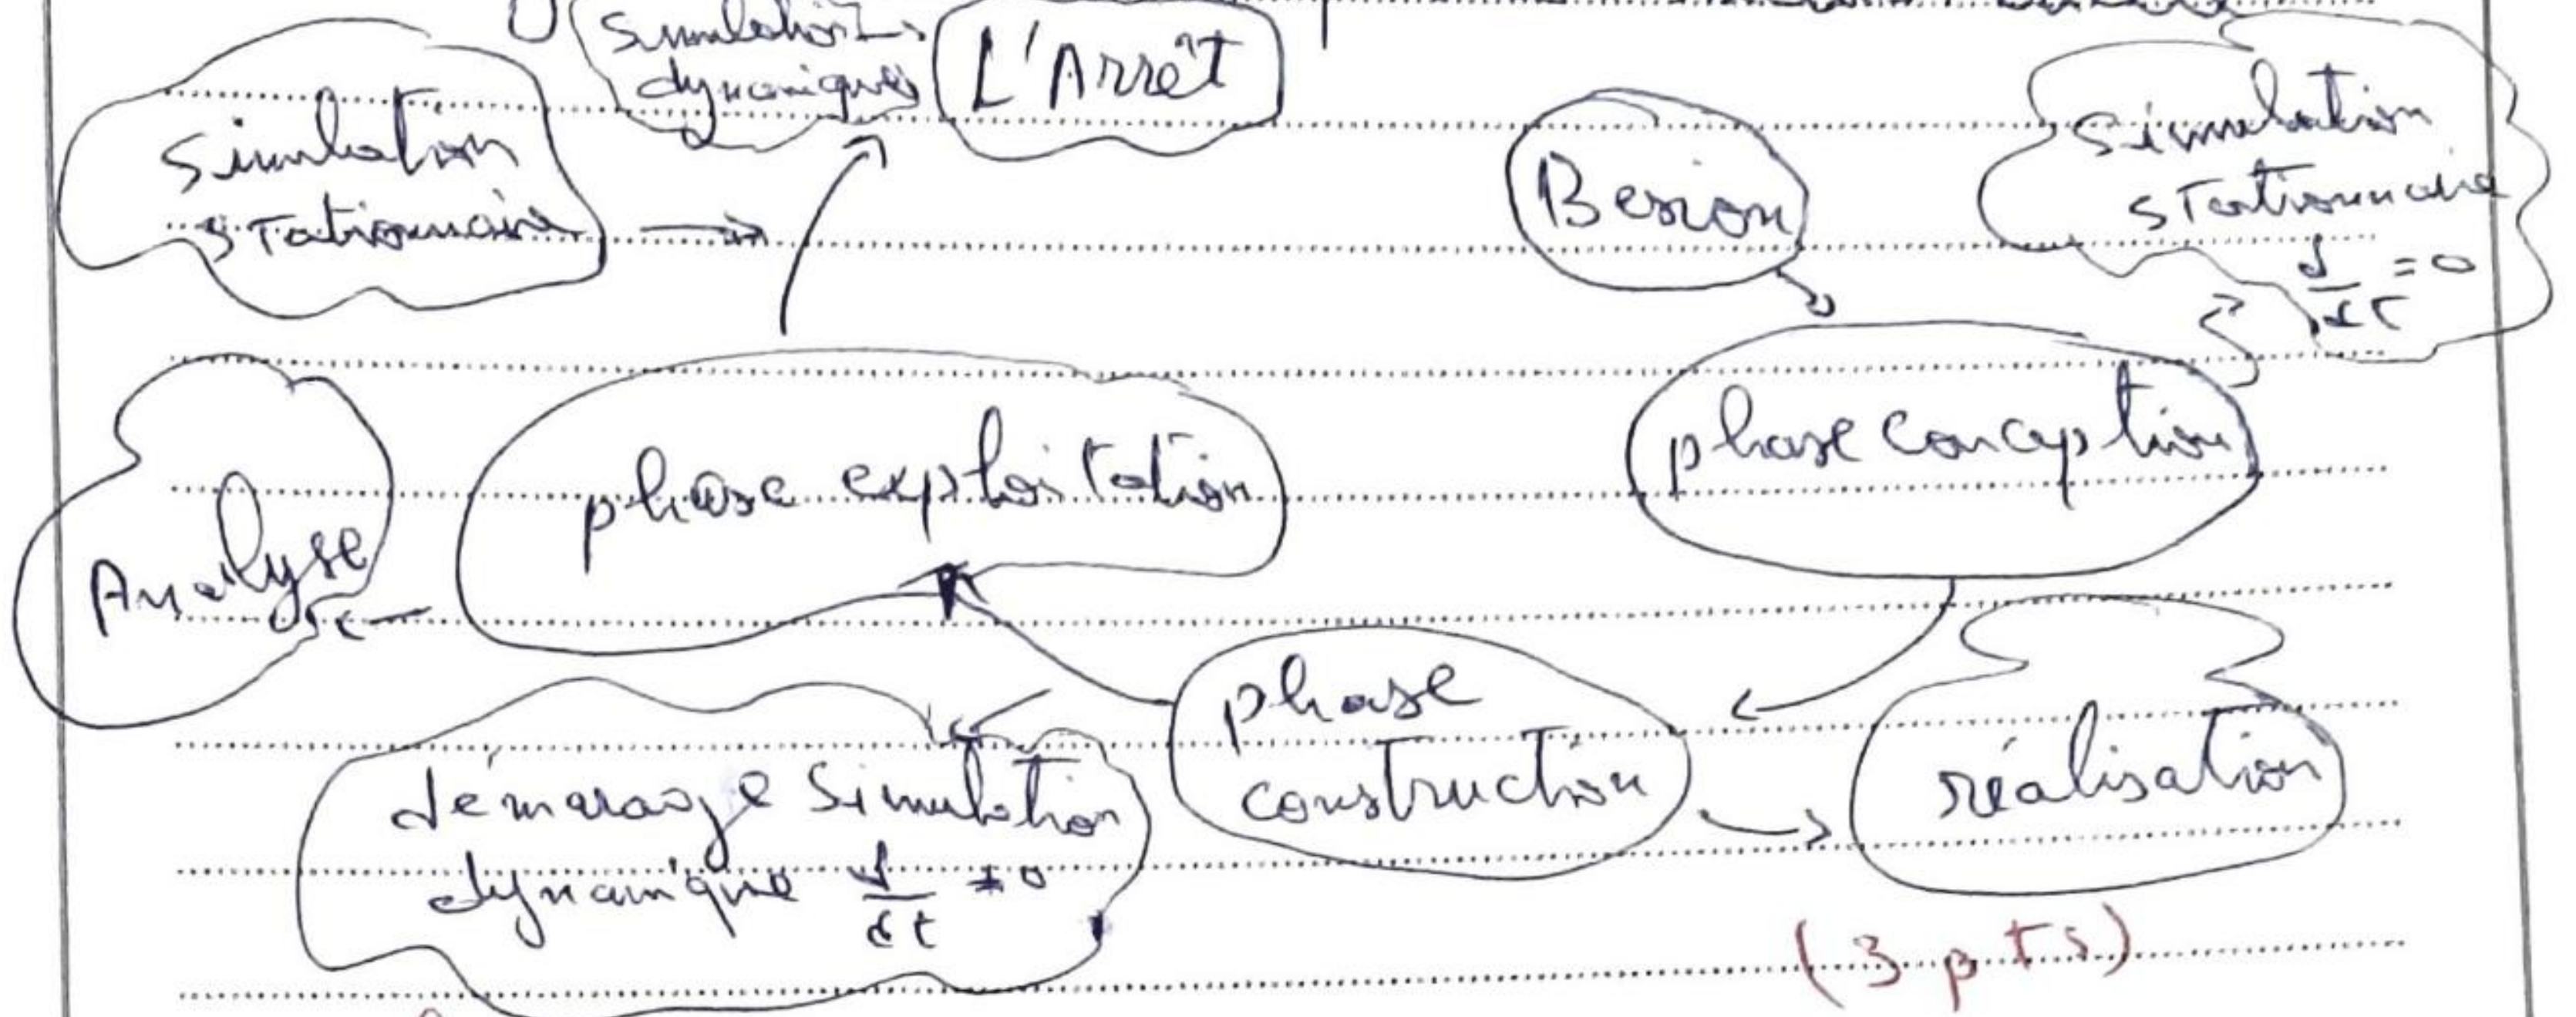 Simulation
dynamique
L'Arrêt
Simulation
stationnaire
Besion
Simulation
stationnaire
d/dt = 0
phase conception
phase exploitation
Analyse
phase
construction
réalisation
démarage Simulation
dynamique d/dt ≠ 0
(3 pts)